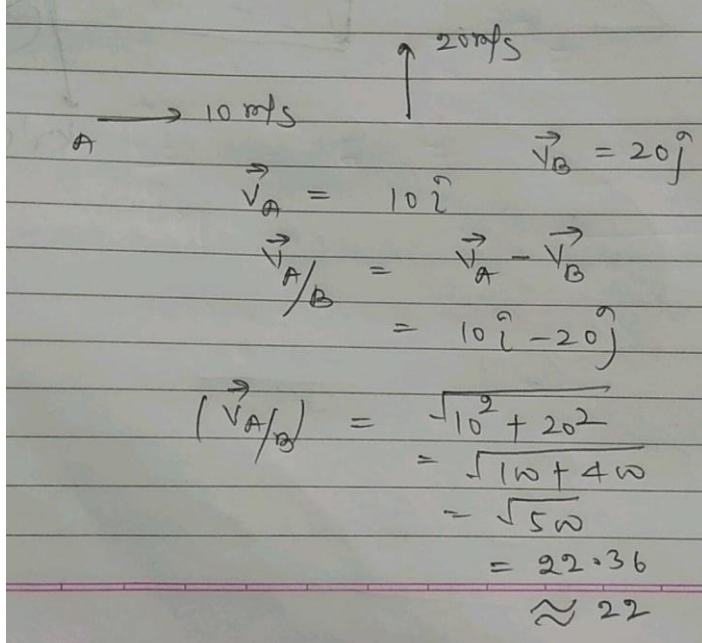 20 m/s
A → 10 m/s
V⃗_B = 20ĵ
V⃗_A = 10î
V⃗_A/B = V⃗_A - V⃗_B
= 10î - 20ĵ
|V⃗_A/B| = √(10² + 20²)
= √(100 + 400)
= √500
= 22.36
≈ 22